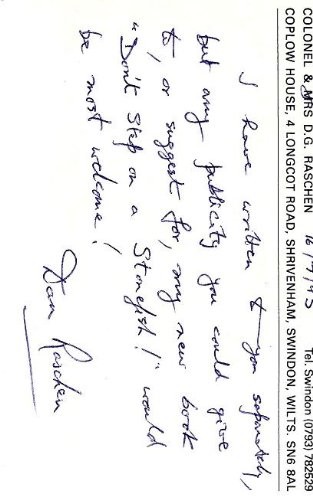 COLONEL & MRS D.G. RASCHEN 16/9/93 Tel. Swindon (0793) 782529
COPLOW HOUSE, 4 LONGCOT ROAD, SHRIVENHAM, SWINDON, WILTS. SN6 8AL
I have written to you separately,
but any publicity you could give
to, or suggest for, my new book
"Don't Step on a Stonefish!" would
be most welcome!
Dan Raschen